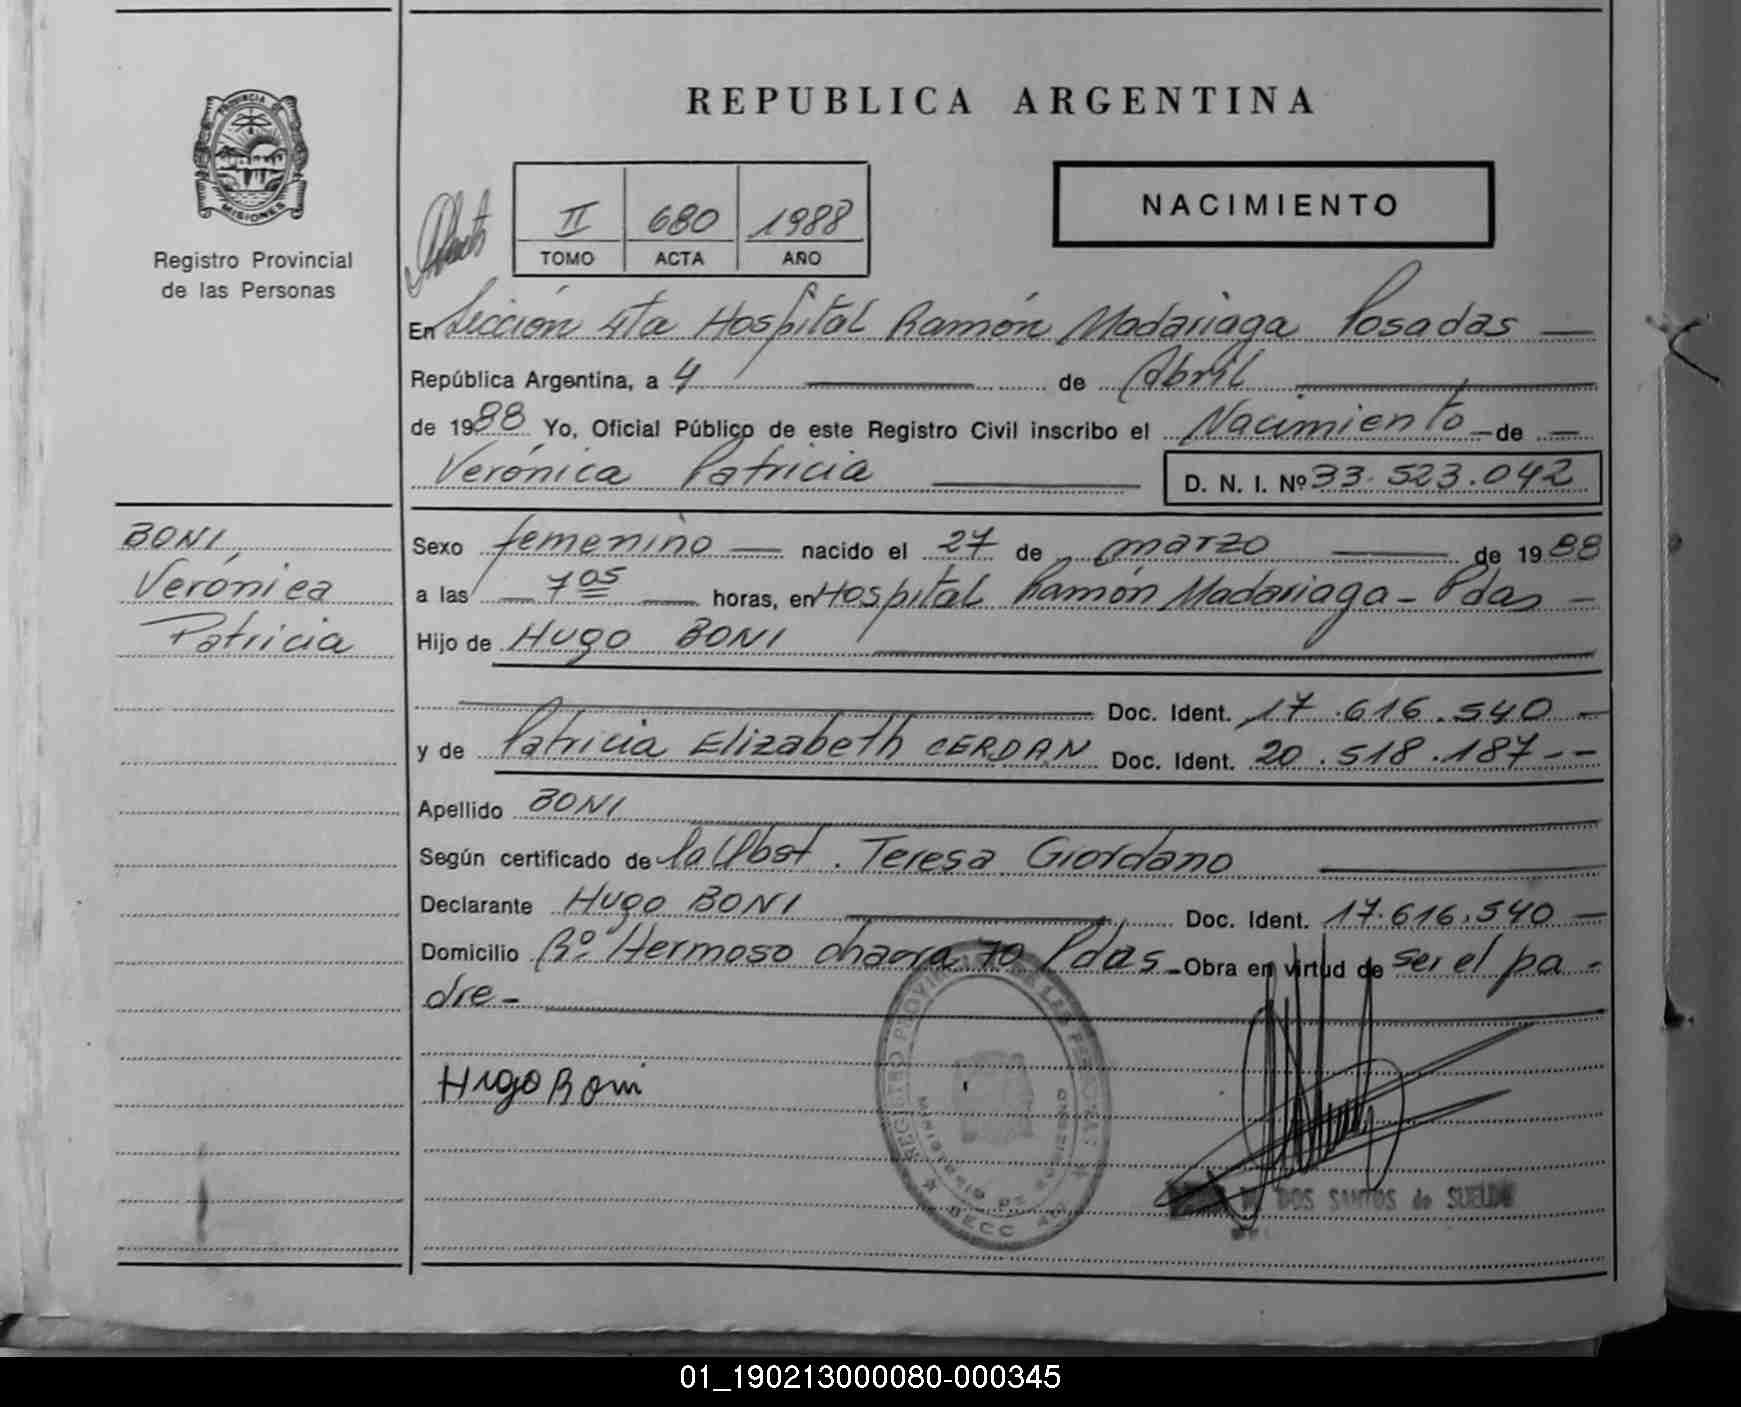 REPUBLICA ARGENTINA
PROVINCIA DE MISIONES
Registro Provincial
de las Personas
II 680 1988
TOMO ACTA AÑO
NACIMIENTO
En Sección 4ta Hospital Ramón Madariaga Posadas —
República Argentina, a 4 — de Abril —
de 1988 Yo, Oficial Público de este Registro Civil inscribo el Nacimiento - de —
Verónica Patricia — D. N. I. Nº 33.523.042
BONI,
Verónica
Patricia
Sexo femenino — nacido el 27 de marzo — de 1988
a las — 7 05 — horas, en Hospital Ramón Madariaga - Pdas -
Hijo de Hugo BONI —
— Doc. Ident. 17.616.540 -
y de Patricia Elizabeth CERDAN Doc. Ident. 20.518.187 - -
Apellido BONI —
Según certificado de la Obst. Teresa Giordano —
Declarante Hugo BONI — Doc. Ident. 17.616.540 —
Domicilio Bº Hermoso chacra 70 Pdas - Obra en virtud de ser el pa -
dre - —
Hugo Boni
REGISTRO PROVINCIAL DE LAS PERSONAS
DOS SANTOS de SUELDO
01_190213000080-000345